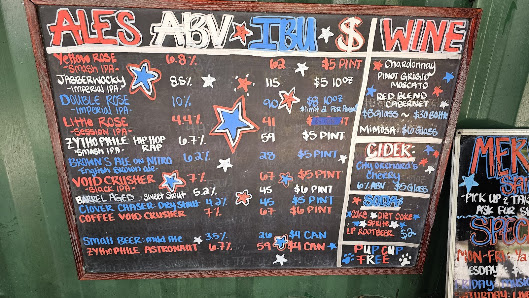 ALES ABV IBU $ WINE
Yellow Rose 6.8% 62 $5 PINT
-Smash IPA-
JABBERWOCKY 8.5% 115 $5 10oz
-IMPERIAL IPA-
DOUBLE ROSE 10% 90 $8 10oz
-IMPERIAL IPA-
Little Rose 4.4% 41
-Session IPA-
ZYTHOPHILE HIP HOP RAP 6.7% 59 $5 PINT
-SMASH IPA-
BROWN'S ALE ON NITRO 6.2% 28 $5 PINT
-English Brown Ale-
VOID CRUSHER 7% 67 $5 PINT
-BLACK IPA-
BARREL AGED 5.2% 45 $6 PINT
CLOVER CHASER Dry Stout 4.2% 45 $5 PINT
COFFEE VOID CRUSHER 7% 67 $6 PINT
SMALL BEER: 3.5% 26 $4 CAN
ZYTHOPHILE ASTRONAUT 6.7% 59 $4 CAN
Chardonnay
PINOT GRIGIO
MOSCATO
RED BLEND
CABERNET
$8 Glass ~ $30 Bottle
MIMOSA $6 Glass
CIDER:
Cherry
6% ABV $5 Glass
COKE DIET COKE
SPRITE
ROOTBEER $2
PUP CUP
FREE
MER
PICK UP
ASK FOR
SPEC
MON-FRI